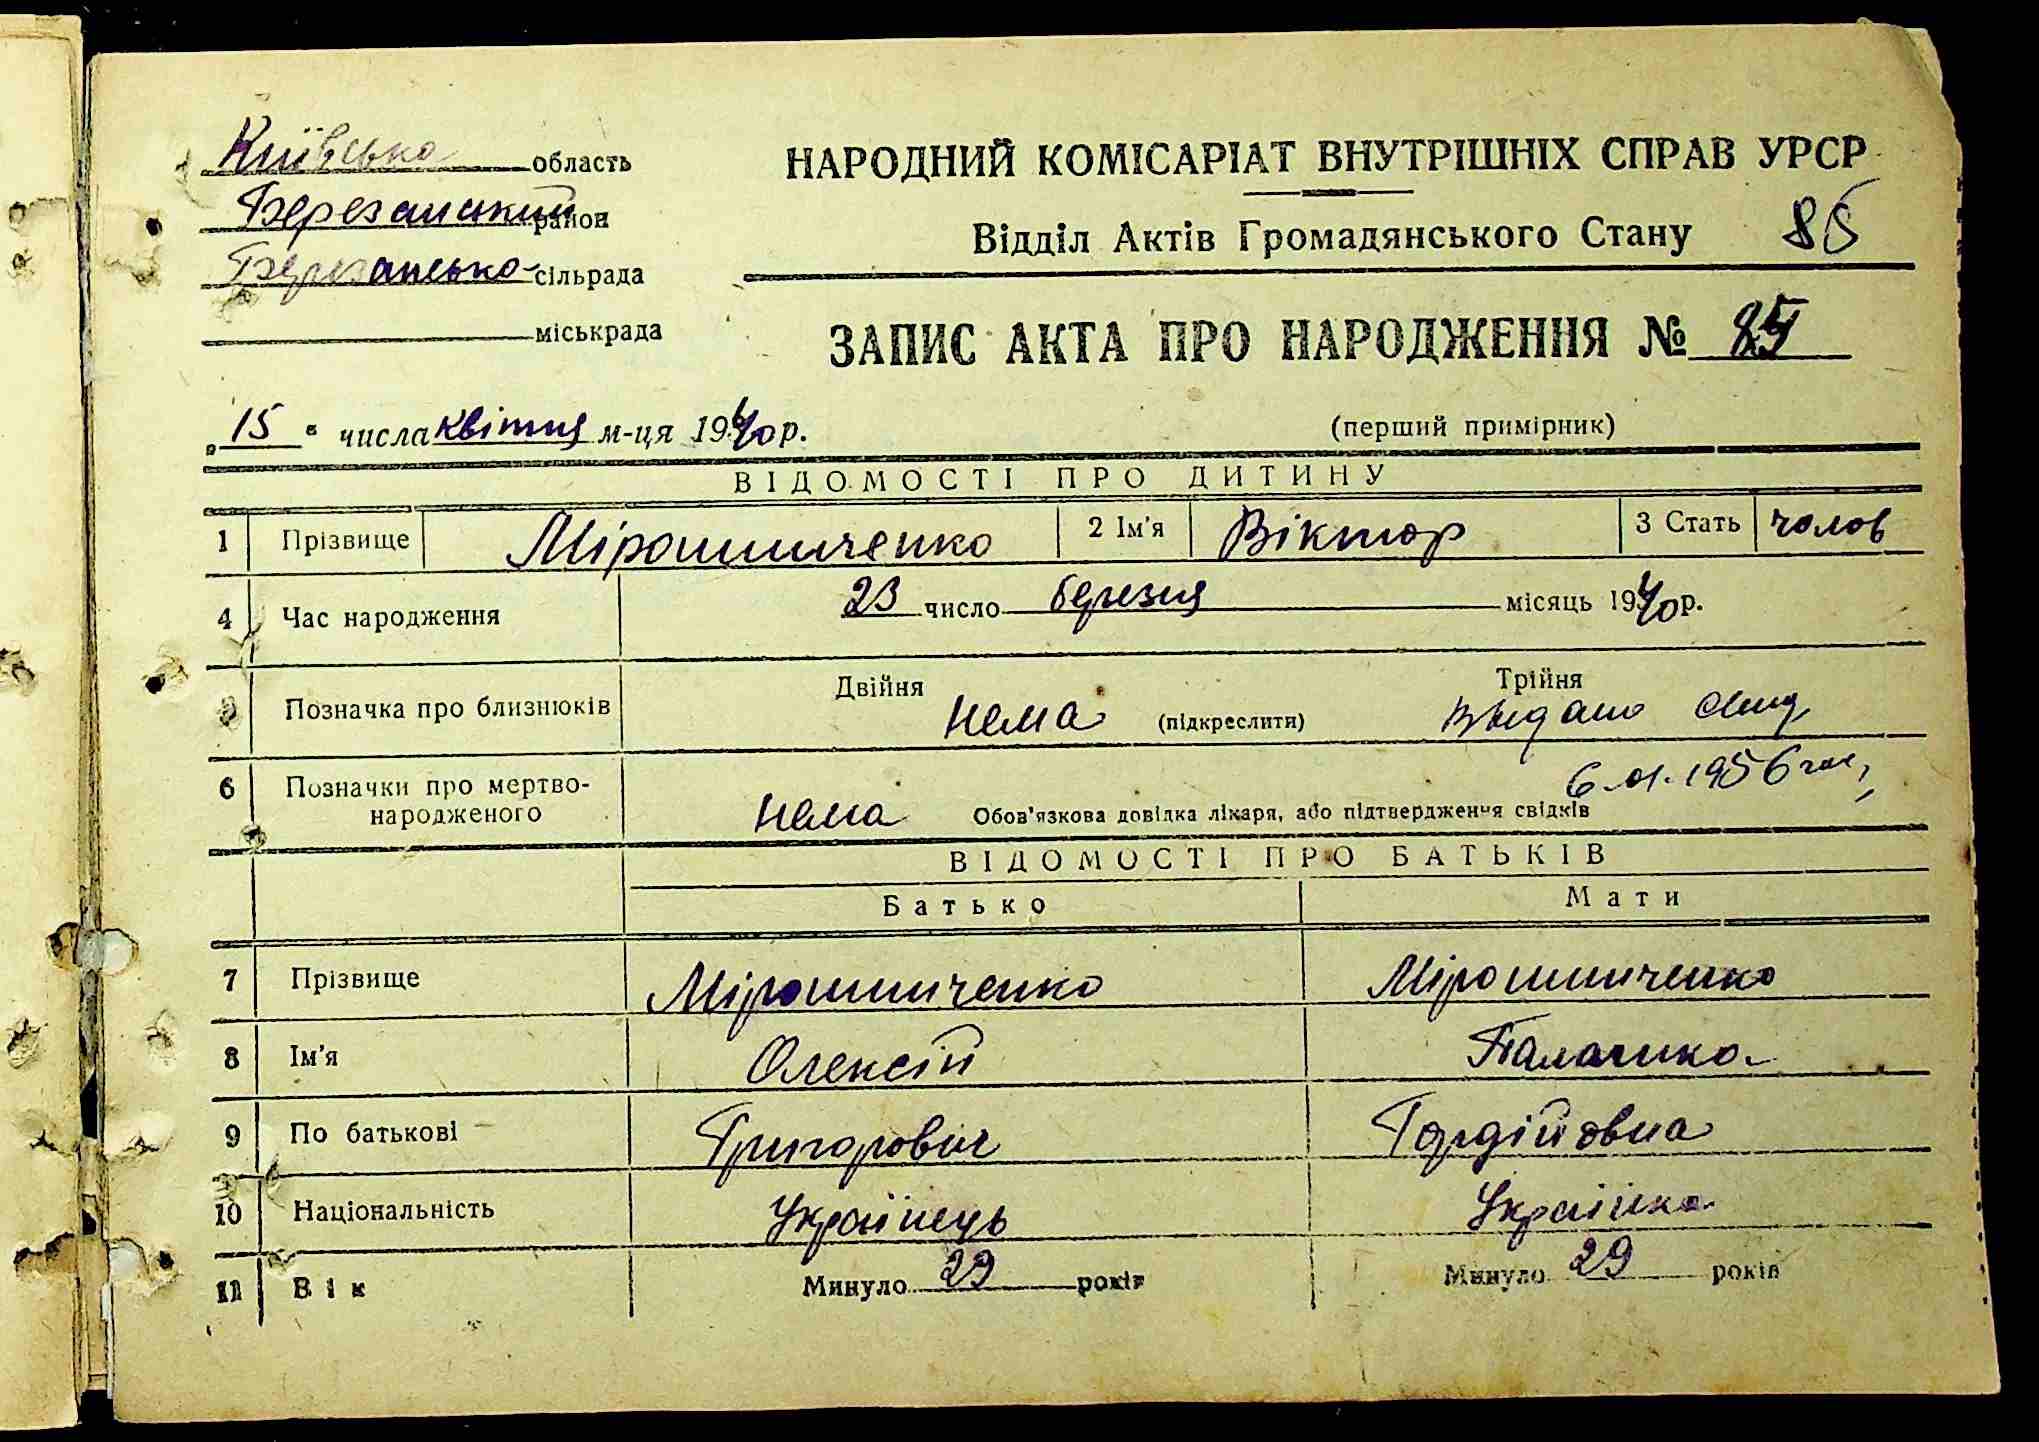 Київська область
Березанський район
Березанська сільрада
міськрада
НАРОДНИЙ КОМІСАРІАТ ВНУТРІШНІХ СПРАВ УРСР
Відділ Актів Громадянського Стану 85
ЗАПИС АКТА ПРО НАРОДЖЕННЯ № 85
„15" числа квітня м-ця 1940 р.
(перший примірник)
ВІДОМОСТІ ПРО ДИТИНУ
1 Прізвище Мірошниченко 2 Ім'я Віктор 3 Стать чолов
4 Час народження 23 число березня місяць 1940 р.
Позначка про близнюків Двійня нема (підкреслити) Трійня
6 Позначки про мертвонародженого нема Обов'язкова довідка лікаря, або підтвердження свідків
1956
ВІДОМОСТІ ПРО БАТЬКІВ
Батько Мати
7 Прізвище Мірошниченко Мірошниченко
8 Ім'я Олексій
9 По батькові Григорович Гордійовна
10 Національність Українець Українка
11 Вік Минуло 29 років Минуло 29 років